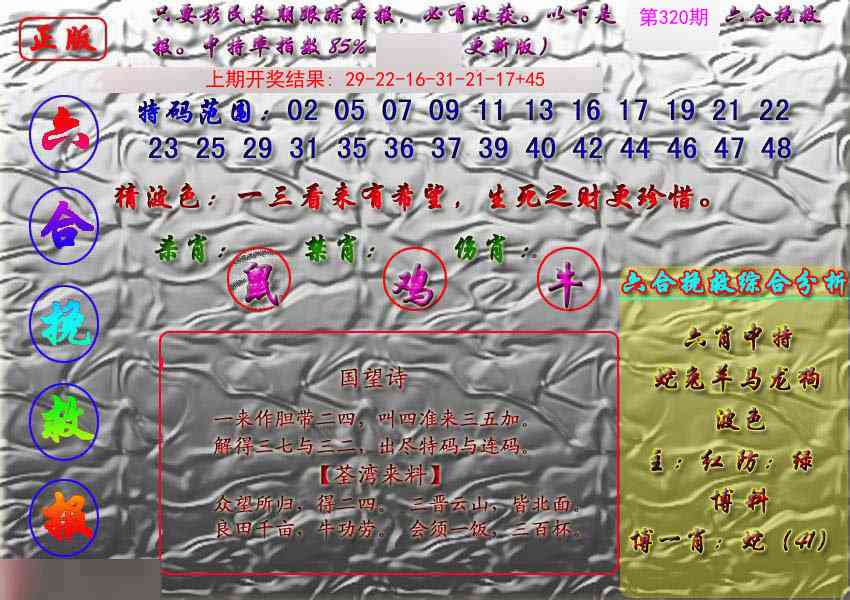 正版
只要彩民长期跟踪本报，必有收获。以下是
第320期
六合挽救
报。中特率指数85%
更新版）
上期开奖结果: 29-22-16-31-21-17+45
特码范围：02 05 07 09 11 13 16 17 19 21 22
23 25 29 31 35 36 37 39 40 42 44 46 47 48
猜波色：一三看来有希望，生死之财更珍惜。
杀肖：鼠
禁肖：鸡
伤肖：牛
六
合
挽
救
报
国望诗
一来作胆带二四，叫四准来三五加。
解得三七与三二，出尽特码与连码。
【荃湾来料】
众望所归，得二四。 三晋云山，皆北面。
良田千亩，牛功劳。 会须一饭，三百杯。
六合挽救综合分析
六肖中特
蛇兔羊马龙狗
波色
主：红防：绿
博料
博一肖：蛇（41）